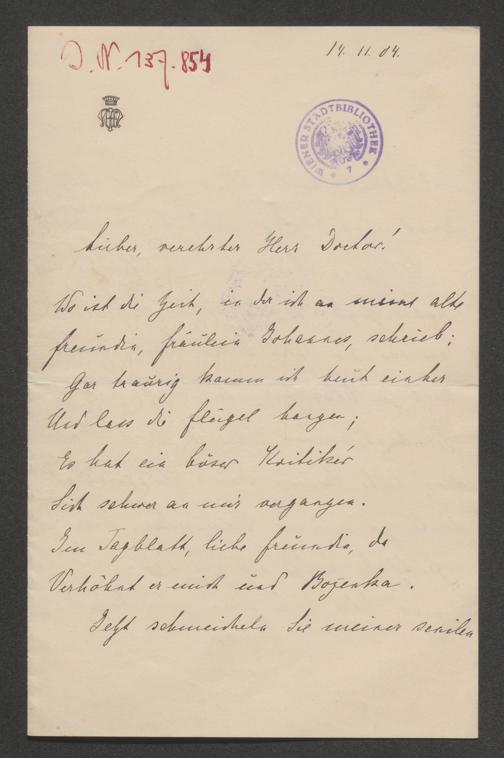 J. N. 137.854
14. 11. 04.
WIENER STADTBIBLIOTHEK
7
Lieber, verehrter Herr Doctor!
Wo ist die Zeit, in der ich an meine alte
Freundin, Fräulein Johannes, schrieb;
Gar traurig komm ich heut einher
Und lass die Flügel hangen;
Es hat ein böser Kritikér
Sich schwer an mir vergangen.
Im Tagblatt, liebe Freundin, da
Verhöhnt er mich und Boženka.
Jetzt schmeicheln Sie meiner senilen